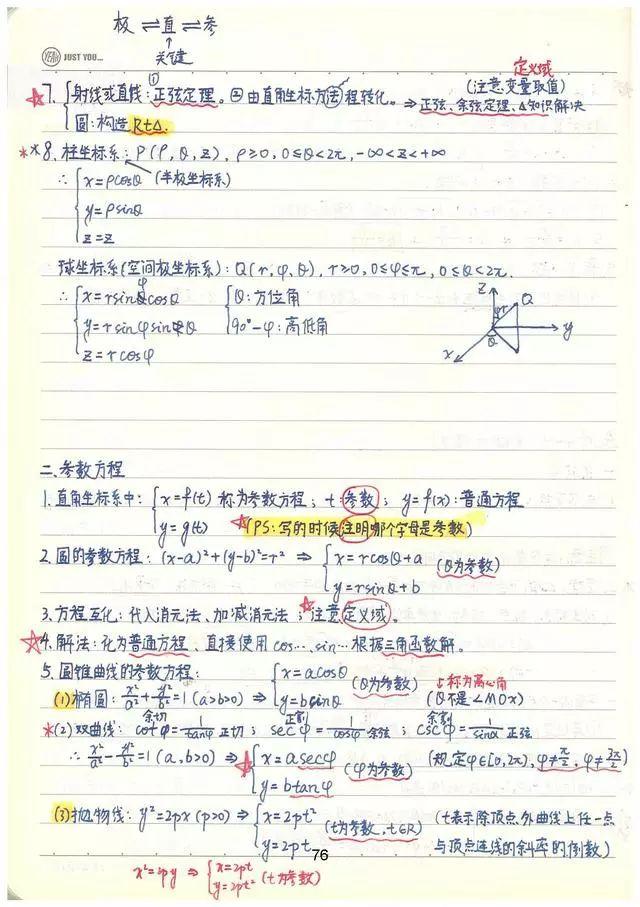 极 ⇌ 直 ⇌ 参
↑
关键
YEAH JUST YOU...
定义域
7. { 射线或直线: ①正弦定理。②由直角坐标方法程转化。 (注意变量取值) ⇒ 正弦、余弦定理、△知识解决
圆: 构造Rt△.
**8. 柱坐标系: P(ρ, θ, z), ρ≥0, 0≤θ<2π, -∞<z<+∞
∴ { x=ρcosθ (半极坐标系)
y=ρsinθ
z=z
球坐标系(空间极坐标系): Q(r, φ, θ), r≥0, 0≤φ≤π, 0≤θ<2π.
∴ { x=rsinφcosθ { θ: 方位角
y=rsinφsinθ 90°-φ: 高低角
z=rcosφ
z Q φ r θ y x
二、参数方程
1. 直角坐标系中: { x=f(t) 称为参数方程; t:参数; y=f(x): 普通方程
y=g(t) ☆(PS: 写的时候注明哪个字母是参数)
2. 圆的参数方程: (x-a)²+(y-b)²=r² ⇒ { x=rcosθ+a (θ为参数)
y=rsinθ+b
3. 方程互化: 代入消元法、加减消元法; ☆注意定义域。
☆4. 解法: 化为普通方程、直接使用cos…, sin…根据三角函数解。
5. 圆锥曲线的参数方程:
(1) 椭圆: x²/a²+y²/b²=1 (a>b>0) ⇒ { x=acosθ (θ为参数) 称为离心角
y=bsinθ (θ不是∠MOx)
*(2) 双曲线: 余切 cotφ=1/tanφ 正切; 正割 secφ=1/cosφ 余弦; 余割 cscφ=1/sinα 正弦
∴ x²/a²-y²/b²=1 (a,b>0) ⇒ ☆{ x=asecφ (φ为参数) (规定φ∈[0,2π), φ≠π/2, φ≠3π/2)
y=btanφ
(3) 抛物线: y²=2px (p>0) ⇒ { x=2pt² (t为参数, t∈R) (t表示除顶点外曲线上任一点
y=2pt 与顶点连线的斜率的倒数)
76
x²=2py ⇒ { x=2pt (t为参数)
y=2pt²